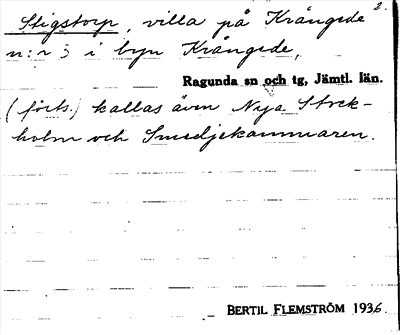 2.
Stigstorp, villa på Krångede
n:r 3 i byn Krångede,
Ragunda sn och tg, Jämtl. län.
(forts.) kallas även Nya Stock-
holm och Smedjekammaren.
BERTIL FLEMSTRÖM 1936.